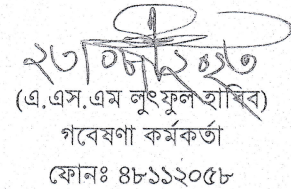 (এ.এস.এম লুৎফুল হাবিব)
গবেষণা কর্মকর্তা
ফোনঃ ৪৮১১২০৫৮